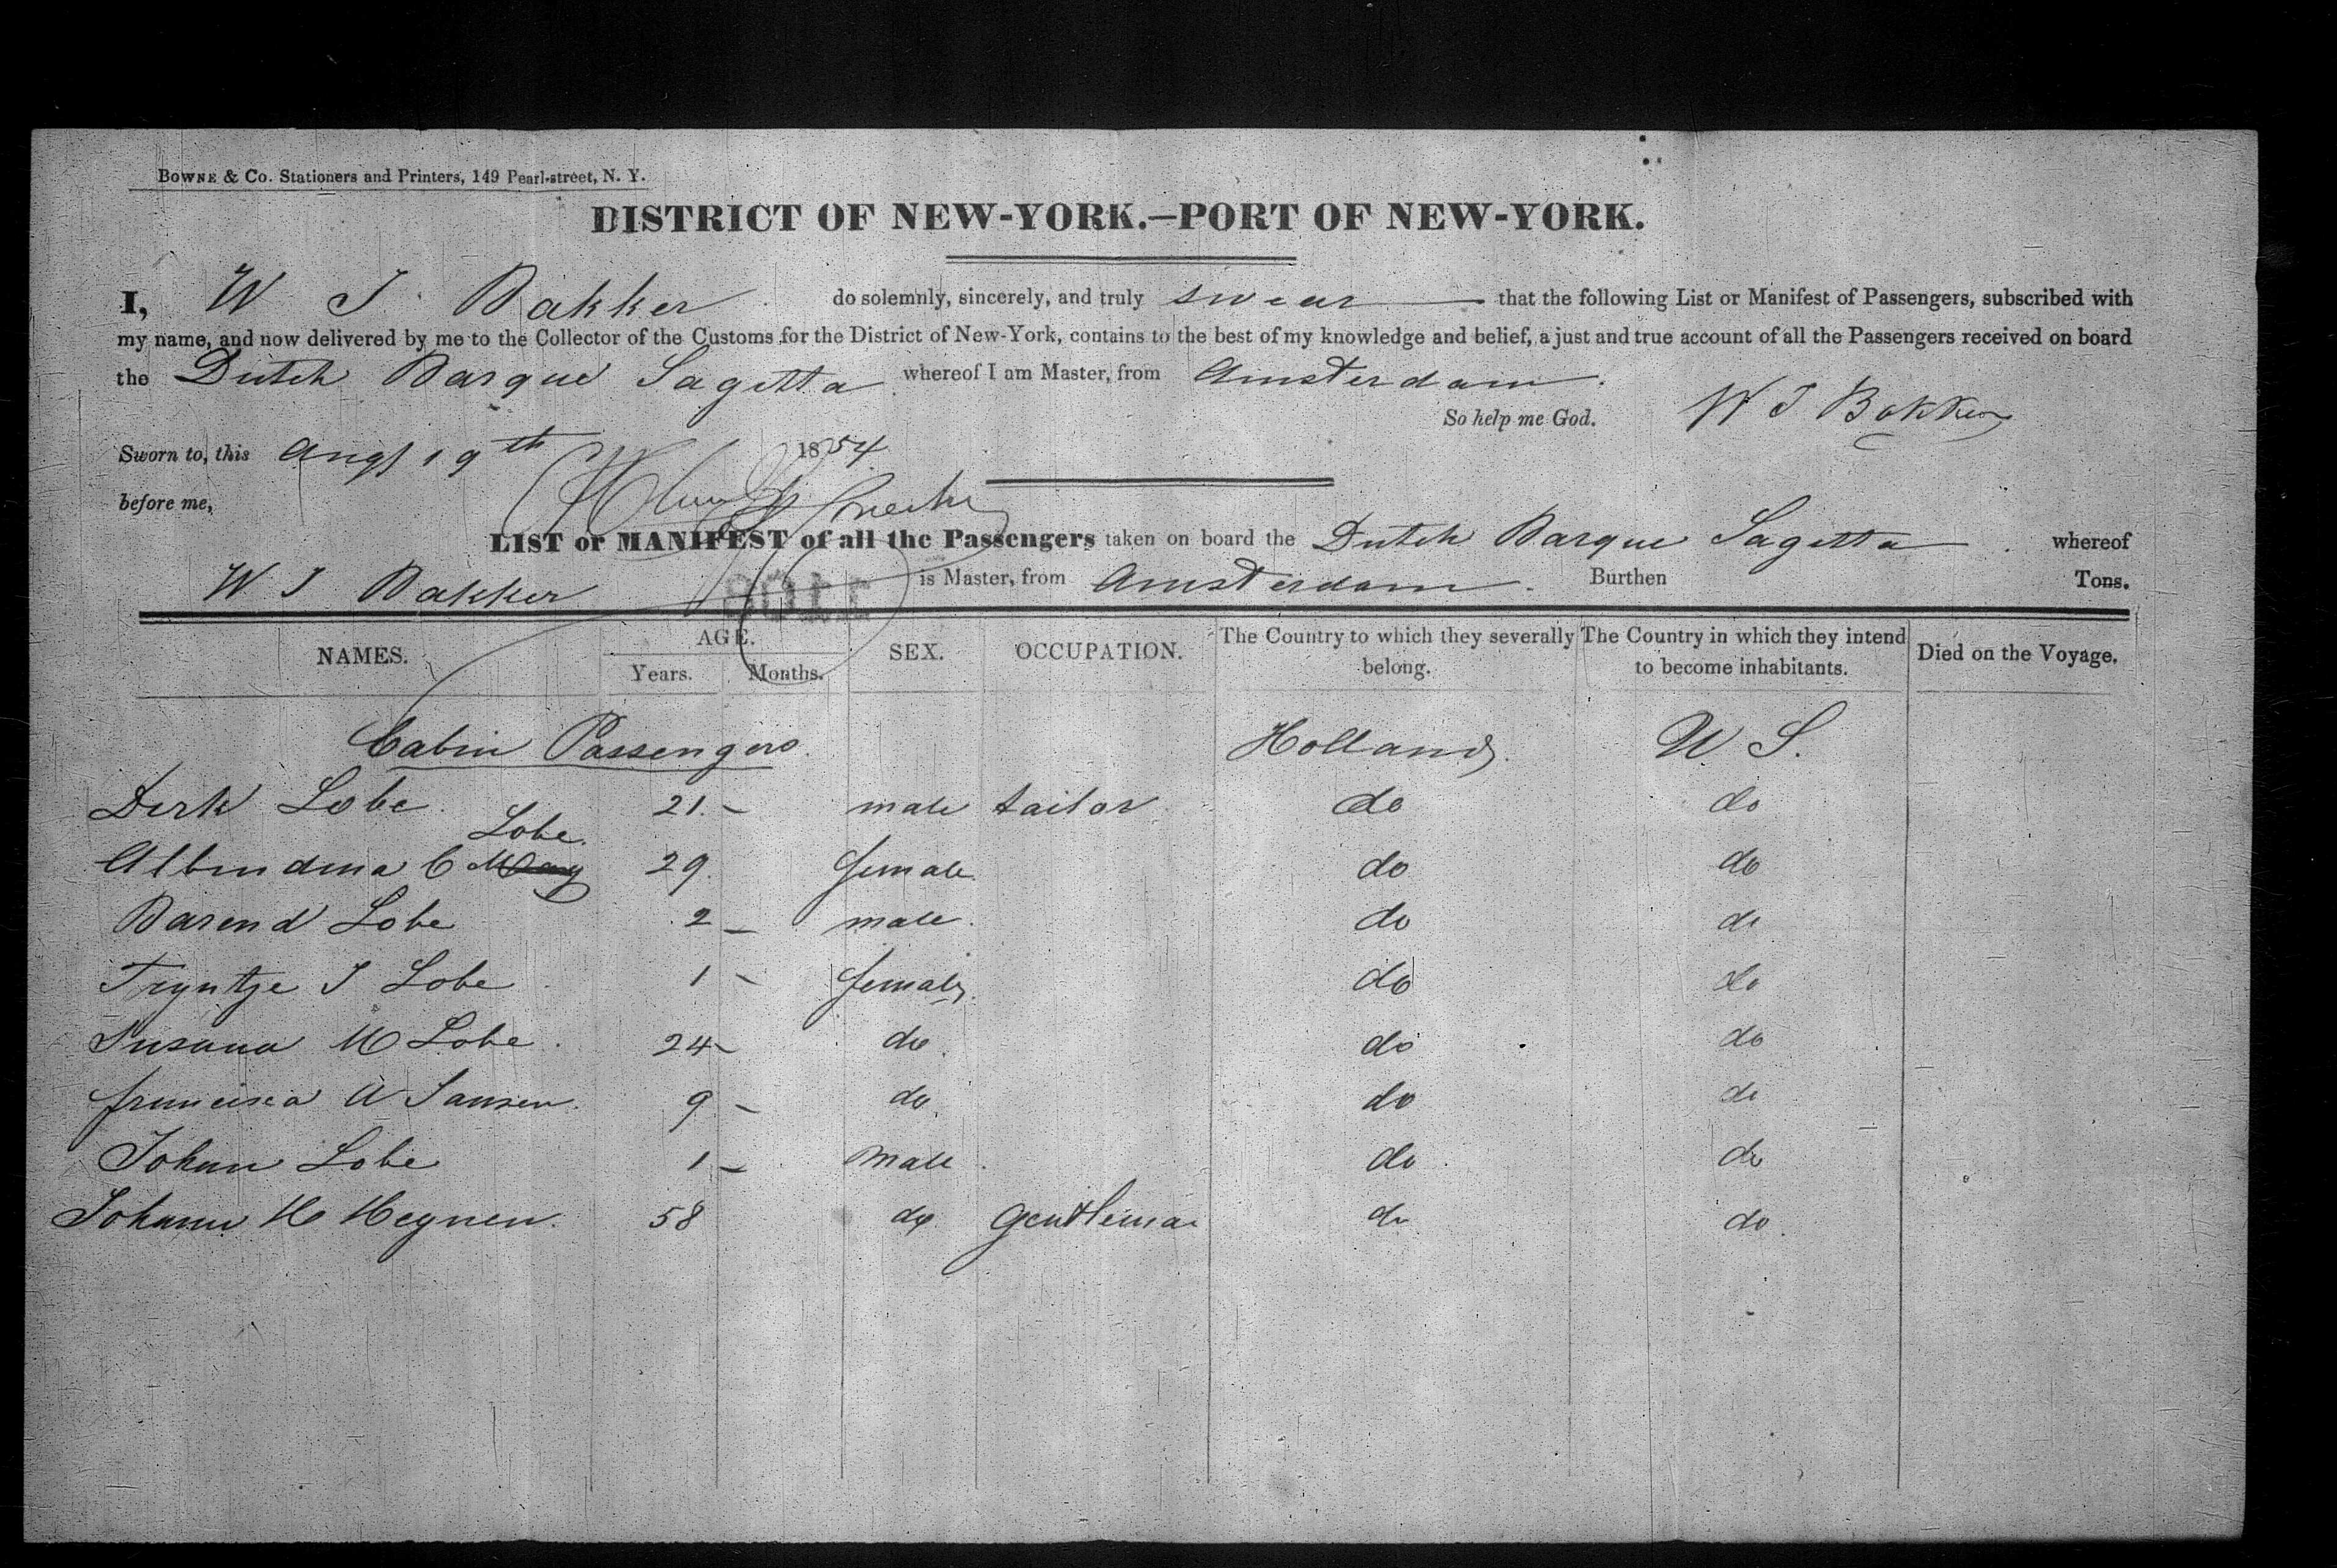 BOWNE & CO. Stationers and Printers, 149 Pearl-street, N. Y.
DISTRICT OF NEW-YORK.—PORT OF NEW-YORK.
I, W J Bakker do solemnly, sincerely, and truly swear that the following List or Manifest of Passengers, subscribed with
my name, and now delivered by me to the Collector of the Customs for the District of New-York, contains to the best of my knowledge and belief, a just and true account of all the Passengers received on board
the Dutch Barque Sagitta whereof I am Master, from Amsterdam.
So help me God. W J Bakker
Sworn to, this Augt 19th 1854
before me,
LIST or MANIFEST of all the Passengers taken on board the Dutch Barque Sagitta whereof
W J Bakker is Master, from Amsterdam. Burthen Tons.
NAMES. AGE. Years. Months. SEX. OCCUPATION. The Country to which they severally belong. The Country in which they intend to become inhabitants. Died on the Voyage.
Cabin Passengers. Holland. U S.
Dirk Lobe 21 - male tailor do do
Lobe
Albindina C 29 female do do
Barend Lobe 2 - male do do
Tryntje J Lobe 1 - female do do
Susana M Lobe 24 - do do do
francisca W Jansen 9 - do do do
Johan Lobe 1 - Male do do
Johann H Heynen. 58 do gentleman do do